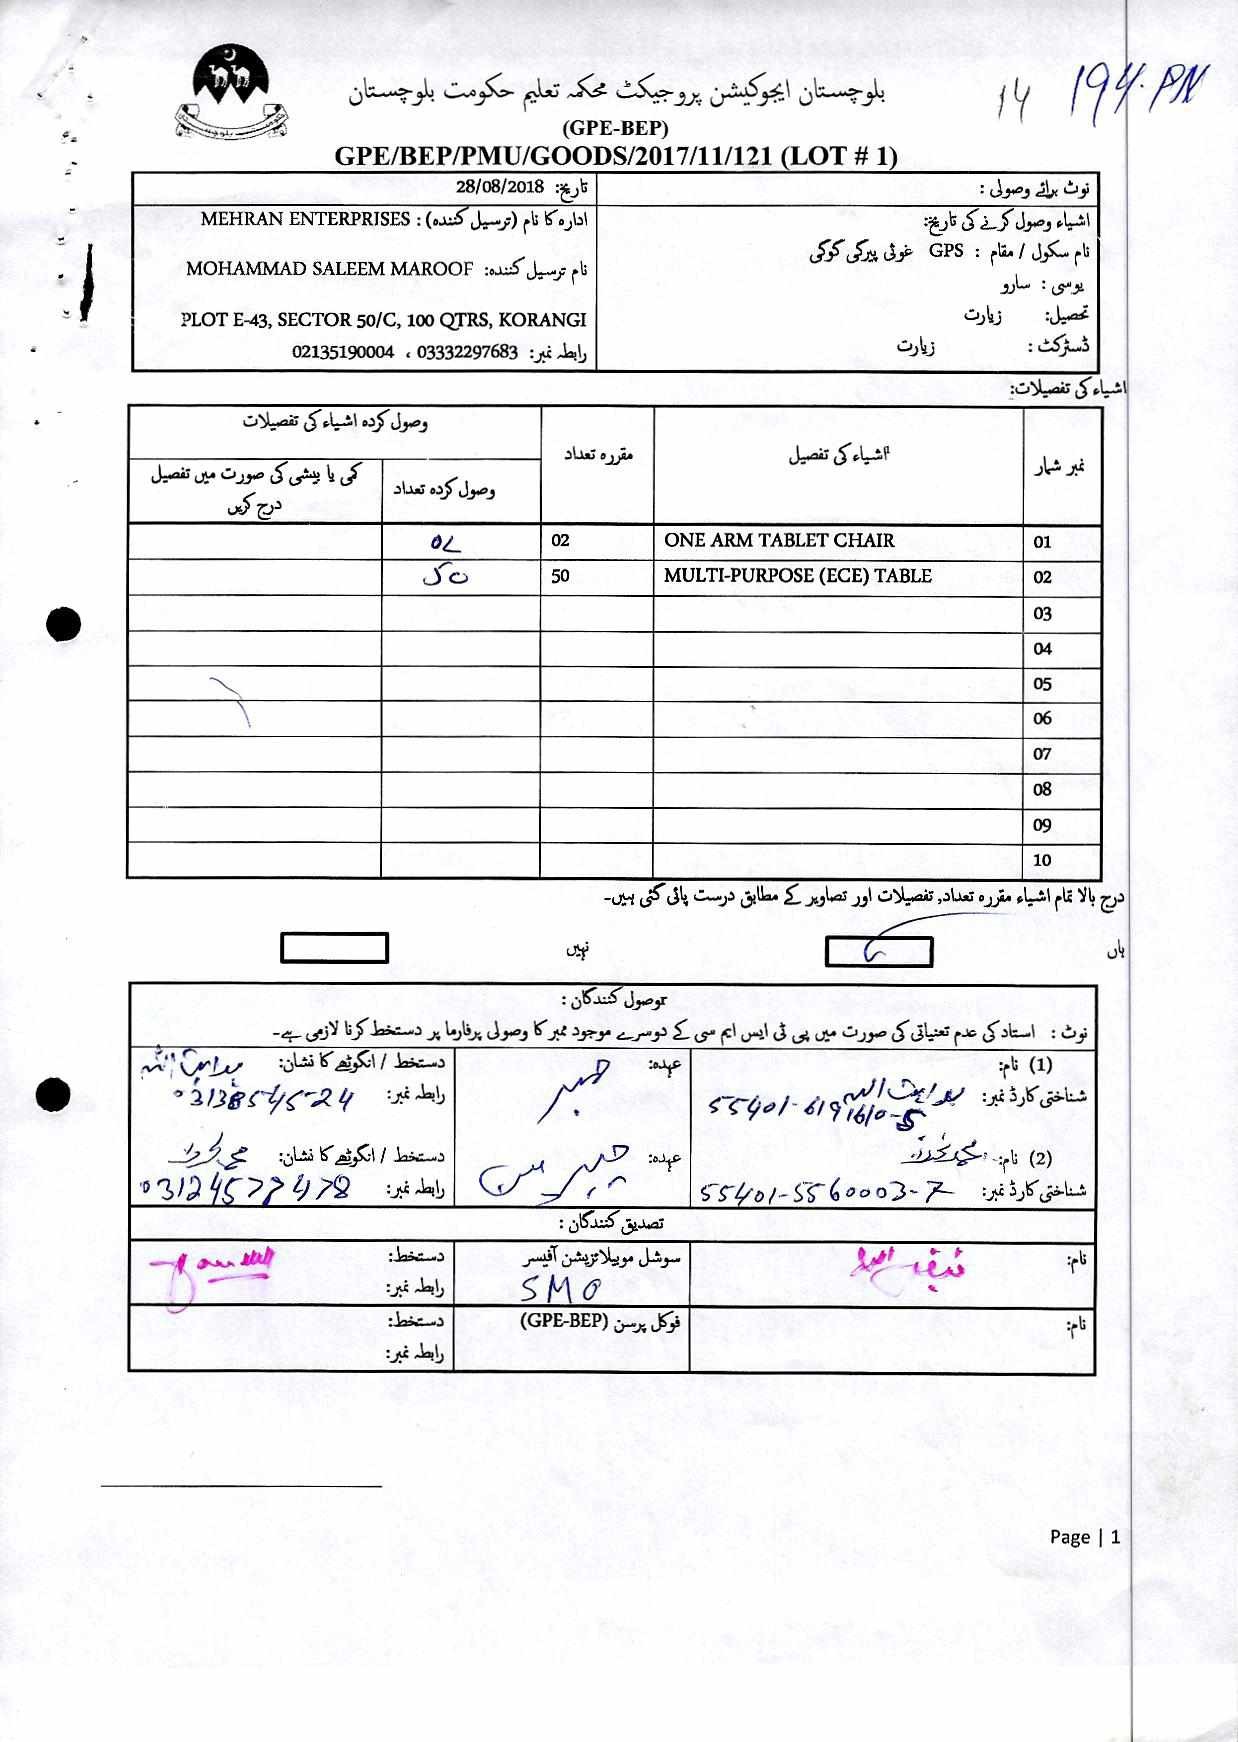 14 194.PN
بلوچستان ایجوکیشن پروجیکٹ محکمہ تعلیم حکومت بلوچستان
(GPE-BEP)
GPE/BEP/PMU/GOODS/2017/11/121 (LOT # 1)
نوٹ برائے وصولی :
اشیاء وصول کرنے کی تاریخ:
نام سکول / مقام : GPS غوثی پیرکی کوکی
یوسی : سارو
تحصیل: زیارت
ڈسٹرکٹ : زیارت
تاریخ: 28/08/2018
ادارہ کا نام (ترسیل کنندہ) : MEHRAN ENTERPRISES
نام ترسیل کنندہ: MOHAMMAD SALEEM MAROOF
PLOT E-43, SECTOR 50/C, 100 QTRS, KORANGI
رابطہ نمبر: 03332297683 ، 02135190004
اشیاء کی تفصیلات:
نمبر شمار اشیاء کی تفصیل مقررہ تعداد وصول کردہ اشیاء کی تفصیلات
وصول کردہ تعداد کمی یا بیشی کی صورت میں تفصیل درج کریں
01 ONE ARM TABLET CHAIR 02 02
02 MULTI-PURPOSE (ECE) TABLE 50 50
03
04
05
06
07
08
09
10
درج بالا تمام اشیاء مقررہ تعداد, تفصیلات اور تصاویر کے مطابق درست پائی گئی ہیں۔
ہاں نہیں
وصول کنندگان :
نوٹ : استاد کی عدم تعیناتی کی صورت میں پی ٹی ایس ایم سی کے دوسرے موجود ممبر کا وصولی پرفارما پر دستخط کرنا لازمی ہے۔
(1) نام: ہدایت اللہ عہدہ: ممبر دستخط / انگوٹھے کا نشان: ہدایت اللہ
شناختی کارڈ نمبر: 55401-6191610-5 رابطہ نمبر: 03138545524
(2) نام: عہدہ: چیرمین دستخط / انگوٹھے کا نشان:
شناختی کارڈ نمبر: 55401-5560003-7 رابطہ نمبر: 03124577478
تصدیق کنندگان :
نام: سوشل موبیلائزیشن آفیسر دستخط:
SMO رابطہ نمبر:
نام: فوکل پرسن (GPE-BEP) دستخط:
رابطہ نمبر:
Page | 1